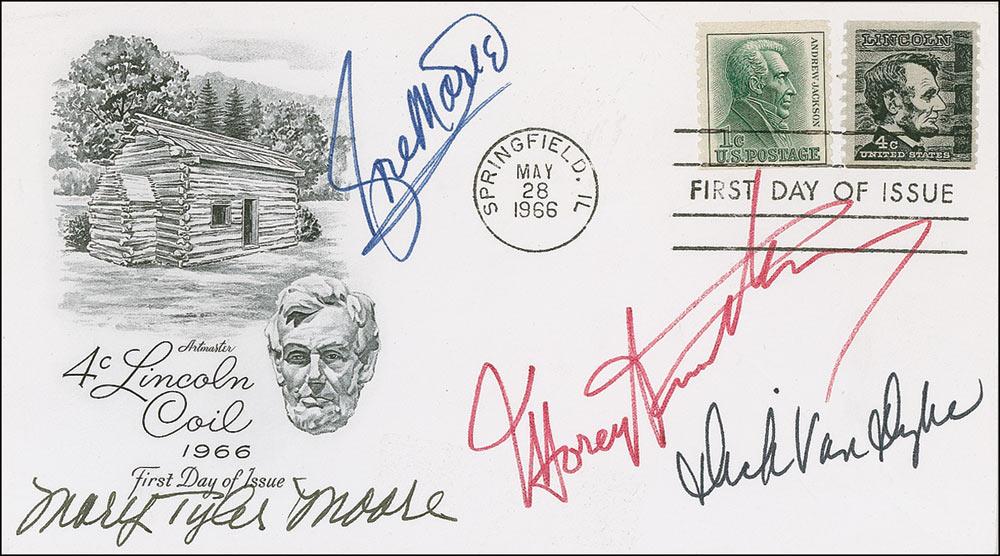 Rose Marie
SPRINGFIELD, IL
MAY
28
1966
ANDREW JACKSON
1c
U.S. POSTAGE
LINCOLN
4c
UNITED STATES
FIRST DAY OF ISSUE
Artmaster
4c Lincoln
Coil
1966
First Day of Issue
Morey Amsterdam
Dick Van Dyke
Mary Tyler Moore